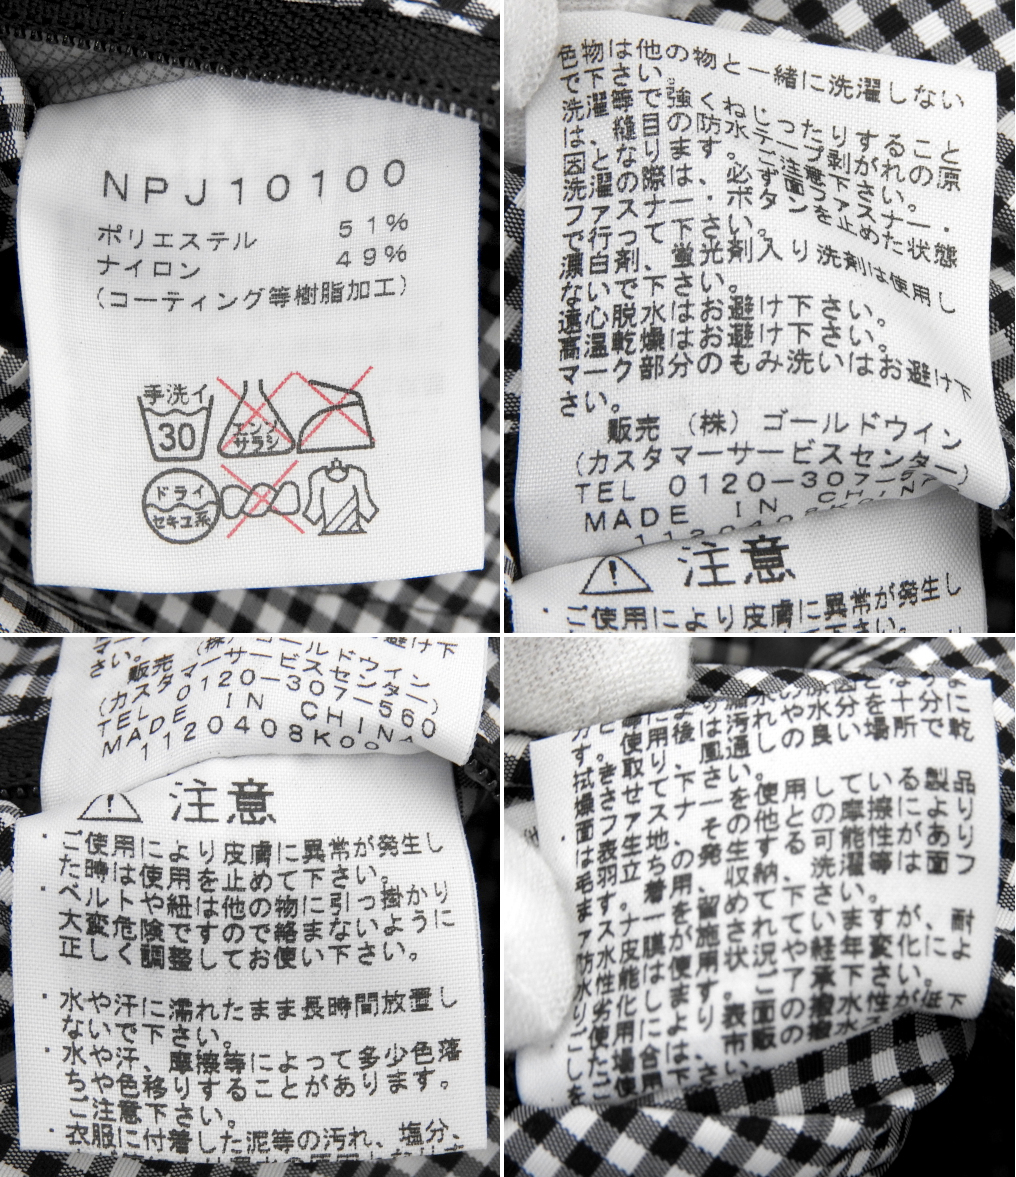 NPJ10100
ポリエステル 51%
ナイロン 49%
(コーティング等樹脂加工)
手洗イ
30
エンソ
サラシ
ドライ
セキユ系
色物は他の物と一緒に洗濯しない
で下さい。
洗濯等で強くねじったりすること
は、縫目の防水テープ剥がれの原
因となります。ご注意下さい。
洗濯の際は、必ず面ファスナー・
ファスナー・ボタンを止めた状態
で行って下さい。
漂白剤、蛍光剤入り洗剤は使用し
ないで下さい。
遠心脱水はお避け下さい。
高温乾燥はお避け下さい。
マーク部分のもみ洗いはお避け下
さい。
販売 (株) ゴールドウイン
(カスタマーサービスセンター)
TEL 0120-307-5
MADE IN CHINA
注意
・ご使用により皮膚に異常が発生し
さい。
販売 (株) ゴールドウイン
(カスタマーサービスセンター)
TEL 0120-307-560
MADE IN CHINA
1120408K00
注意
・ご使用により皮膚に異常が発生し
た時は使用を止めて下さい。
・ベルトや紐は他の物に引っ掛かり
大変危険ですので絡まないように
正しく調整してお使い下さい。
・水や汗に濡れたまま長時間放置し
ないで下さい。
・水や汗、摩擦等によって多少色落
ちや色移りすることがあります。
ご注意下さい。
・衣服に付着した泥等の汚れ、塩分、
拭き取り、風通しの良い場所で乾
燥させて下さい。
面ファスナーを使用している製品
は表生地、その他の摩擦により
毛羽立ちの発生する可能性があり
ます。着用、収納、洗濯等は面フ
ァスナーを留めて下さい。